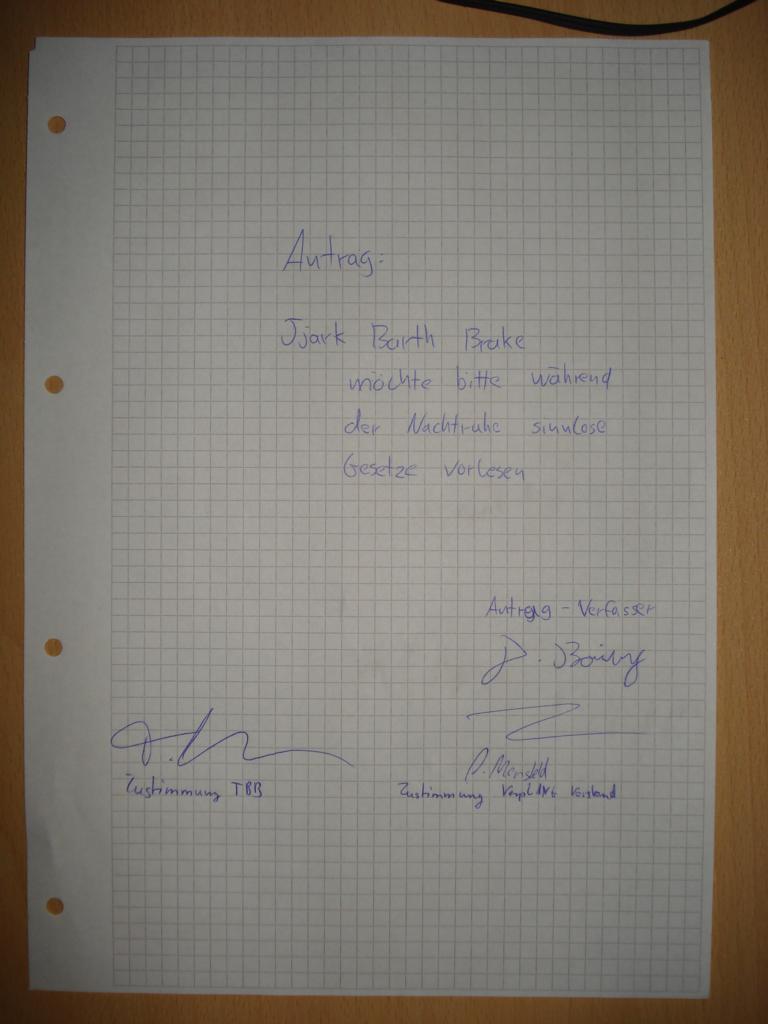 Antrag:
Tjark Barth Brake
möchte bitte während
der Nachtruhe sinnlose
Gesetze vorlesen
Antrag - Verfasser
Zustimmung TBB
Zustimmung Vorstand